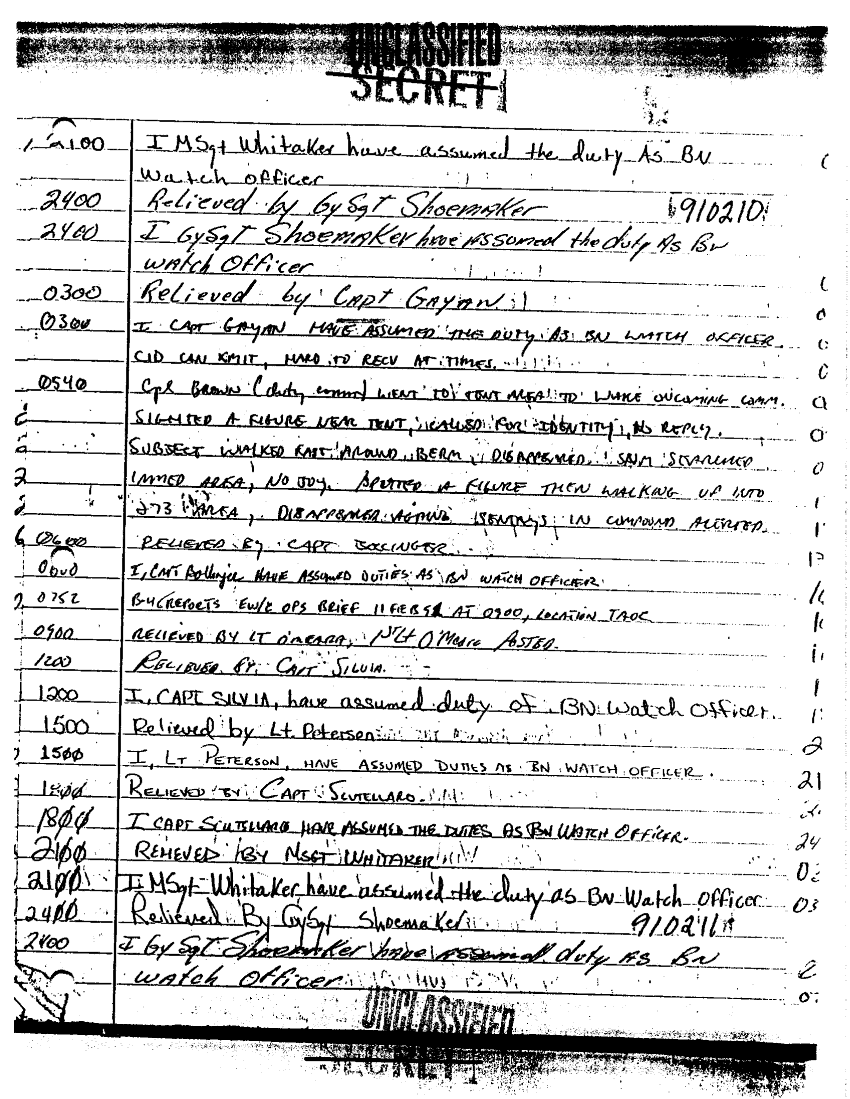 UNCLASSIFIED
SECRET
2100 I MSgt Whitaker have assumed the duty As BN
Watch officer
2400 Relieved by GySgt Shoemaker 910210
2400 I GySgt Shoemaker have assumed the duty As BN
watch Officer
0300 Relieved by Capt Gayan
0300 I CAPT GAYAN HAVE ASSUMED THE DUTY AS BN WATCH OFFICER.
CID CAN XMIT, HARD TO RECV AT TIMES.
0540 Cpl BROWN (duty comm) WENT TO TENT AREA TO WAKE ONCOMING COMM.
SIGHTED A FIGURE NEAR TENT, CALLED FOR IDENTITY, NO REPLY.
SUBJECT WALKED EAST AROUND BERM, DISAPPEARED. SNM SEARCHED
IMMED AREA, NO JOY. SPOTTED A FIGURE THEN WALKING UP INTO
273 AREA, DISAPPEARED AGAIN. SENTRYS IN COMPOUND ALERTED.
0600 RELIEVED BY CAPT BOLLINGER
0600 I, CAPT Bollinger HAVE ASSUMED DUTIES AS BN WATCH OFFICER.
0752 REPORTS EW/C OPS BRIEF 11 FEB 91 AT 0900, LOCATION TAOC
0900 RELIEVED BY LT O'MEARA, 1stLt O'Meara POSTED.
1200 RELIEVED BY CAPT SILVIA.
1200 I, CAPT SILVIA, have assumed duty of BN Watch Officer.
1500 Relieved by Lt. Peterson
1500 I, LT PETERSON, HAVE ASSUMED DUTIES AS BN WATCH OFFICER.
1800 RELIEVED BY CAPT SCUTELLARO.
1800 I CAPT SCUTELLARO HAVE ASSUMED THE DUTIES AS BN WATCH OFFICER.
2100 RELIEVED BY MSGT WHITAKER
2100 I MSgt Whitaker have assumed the duty as BN Watch Officer
2400 Relieved By GySgt Shoemaker 910211
2400 I GySgt Shoemaker have assumed duty AS BN
watch Officer
UNCLASSIFIED
SECRET